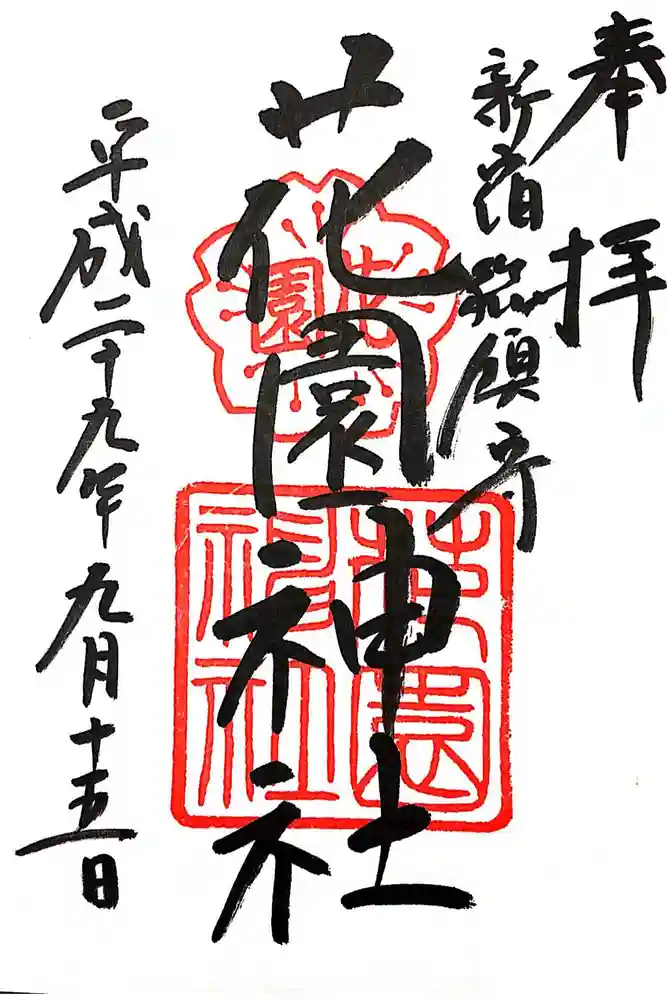 奉拝
新宿総鎮守
花園神社
花園
花園神社
平成二十九年九月十五日